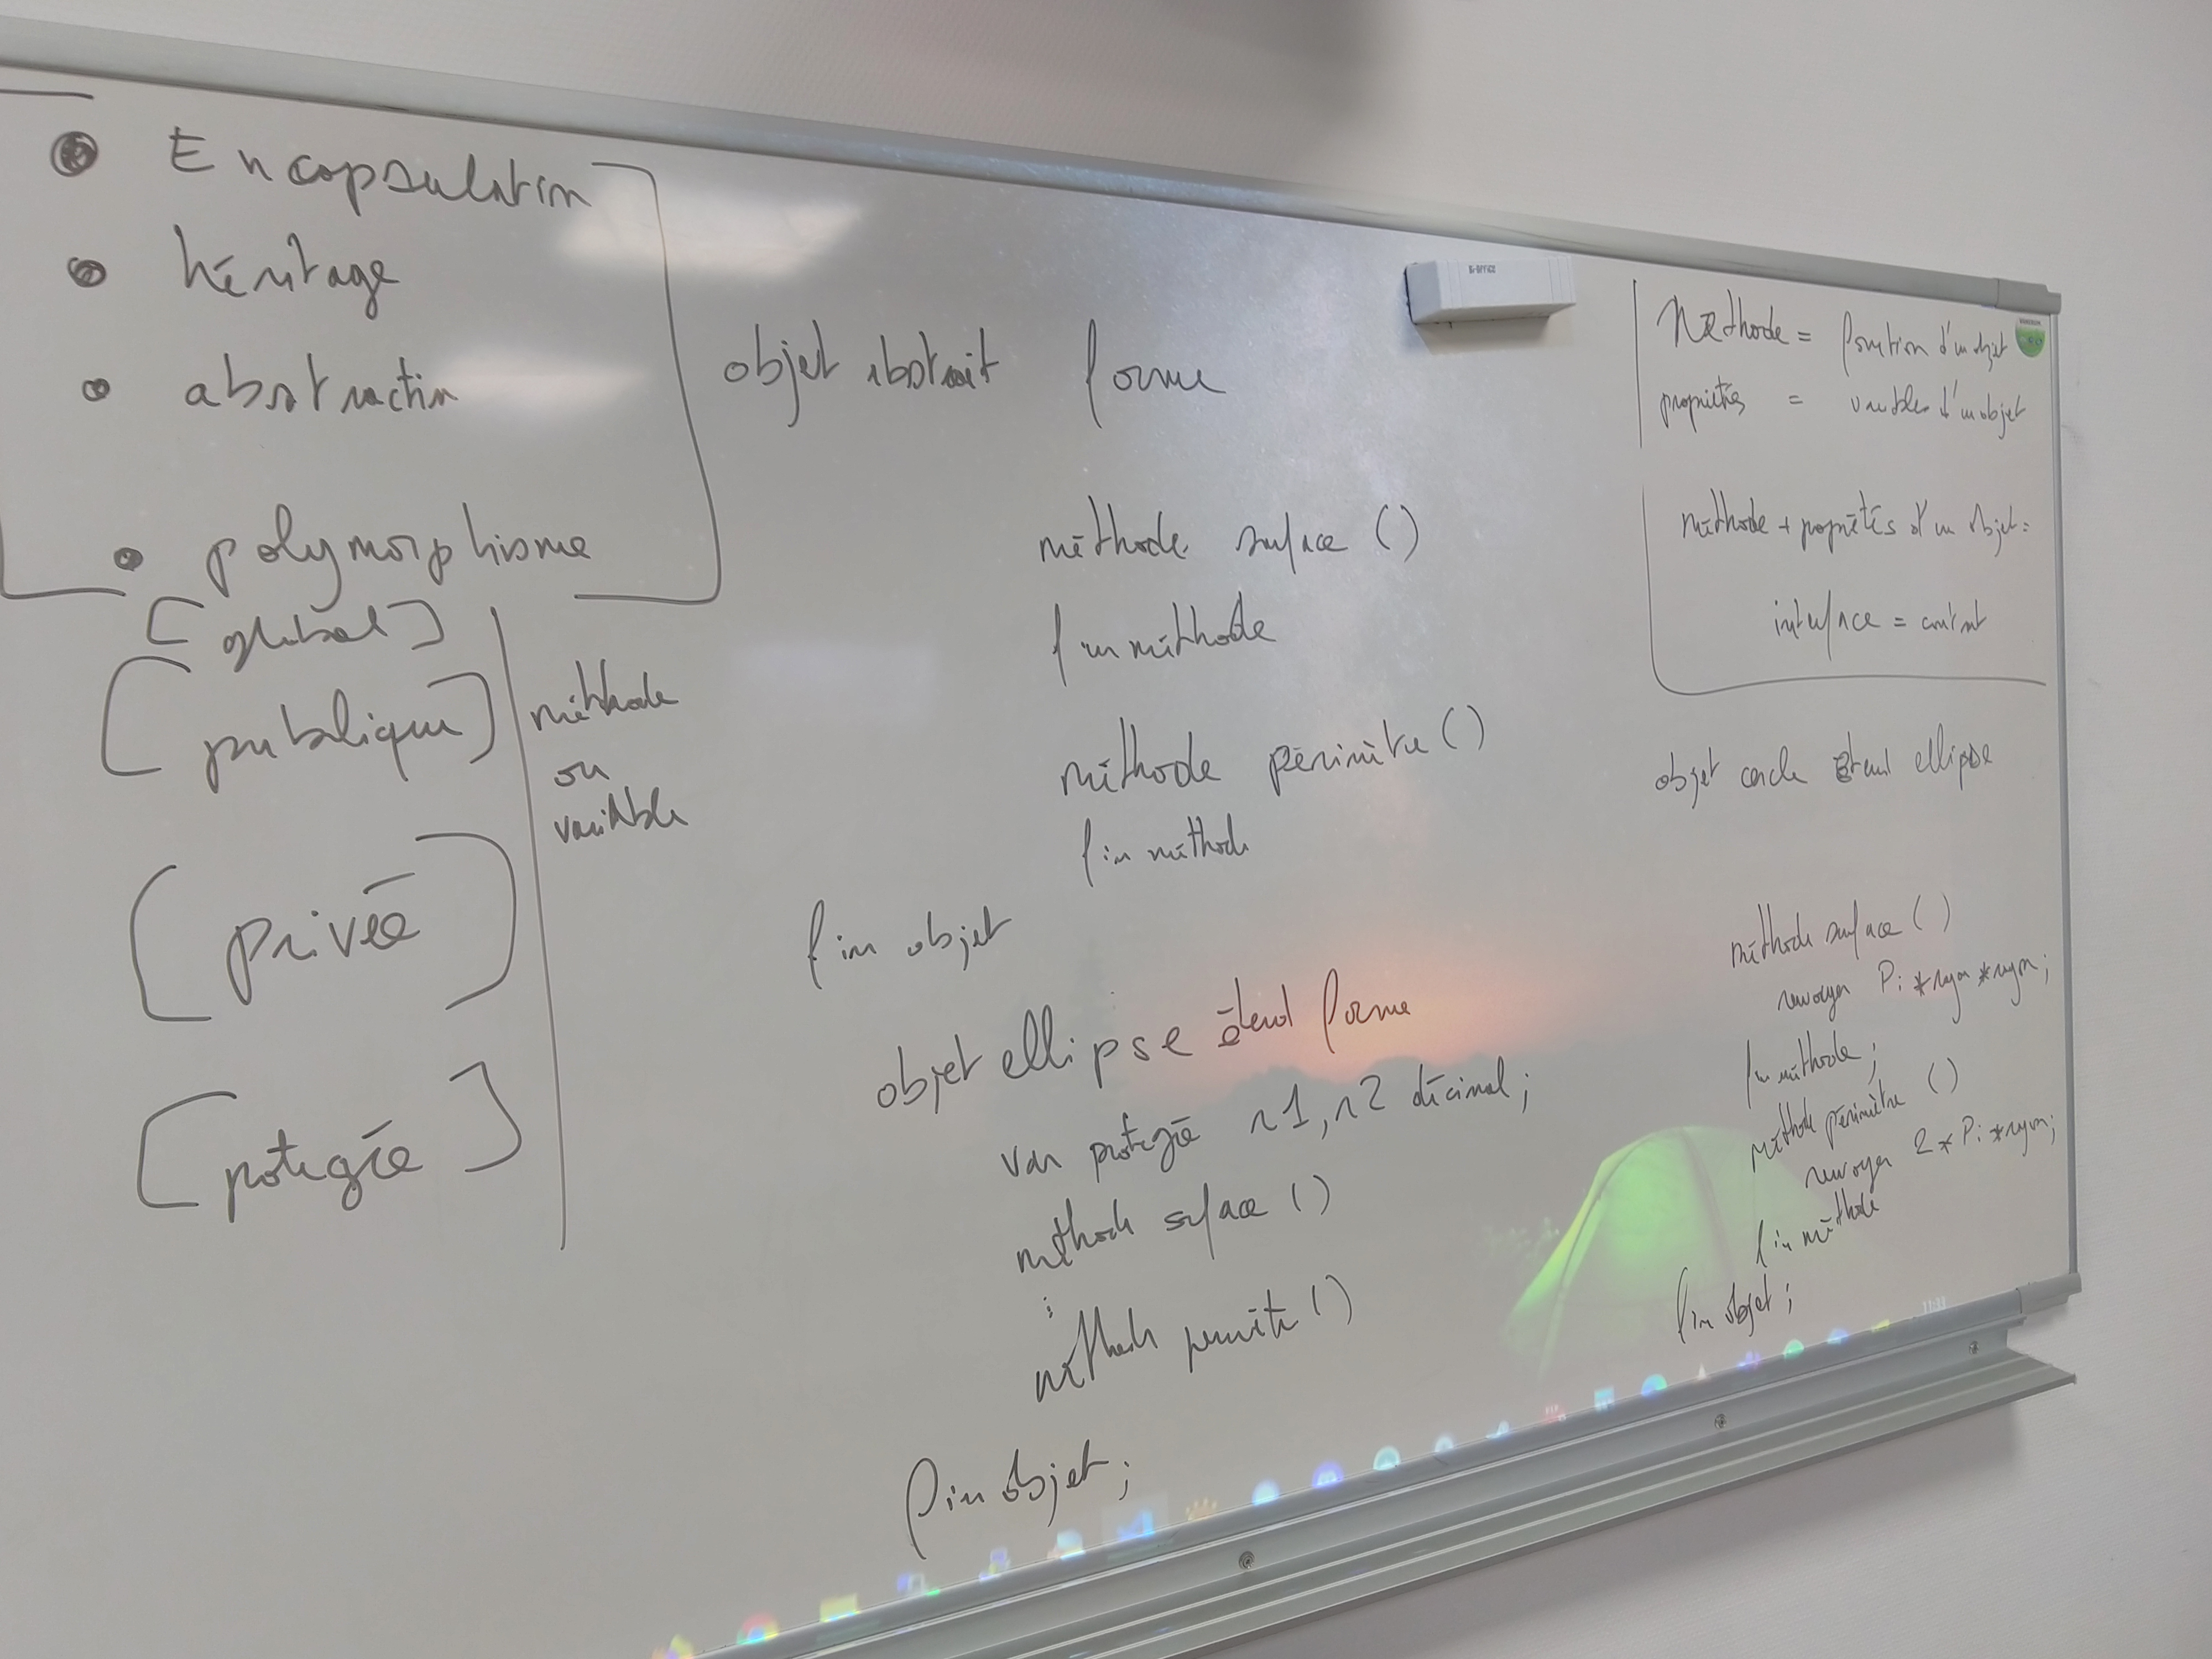 Encapsulation
héritage
abstraction
polymorphisme
[global]
[publique]
méthode
ou
variable
[privée]
[protegée]
objet abstrait forme
méthode surface ()
fin méthode
méthode périmètre ()
fin méthode
fin objet
objet ellipse étend forme
var protegée r1, r2 décimal;
méthode surface ()
:
méthode perimètre ()
fin objet;
BI-OFFICE
Méthode = fonction d'un objet
propriétés = variables d'un objet
méthode + propriétés d'un objet =
interface = contrat
objet cercle étend ellipse
méthode surface ()
renvoyer Pi * rayon * rayon;
fin méthode;
méthode périmètre ()
renvoyer 2 * Pi * rayon;
fin méthode
fin objet;